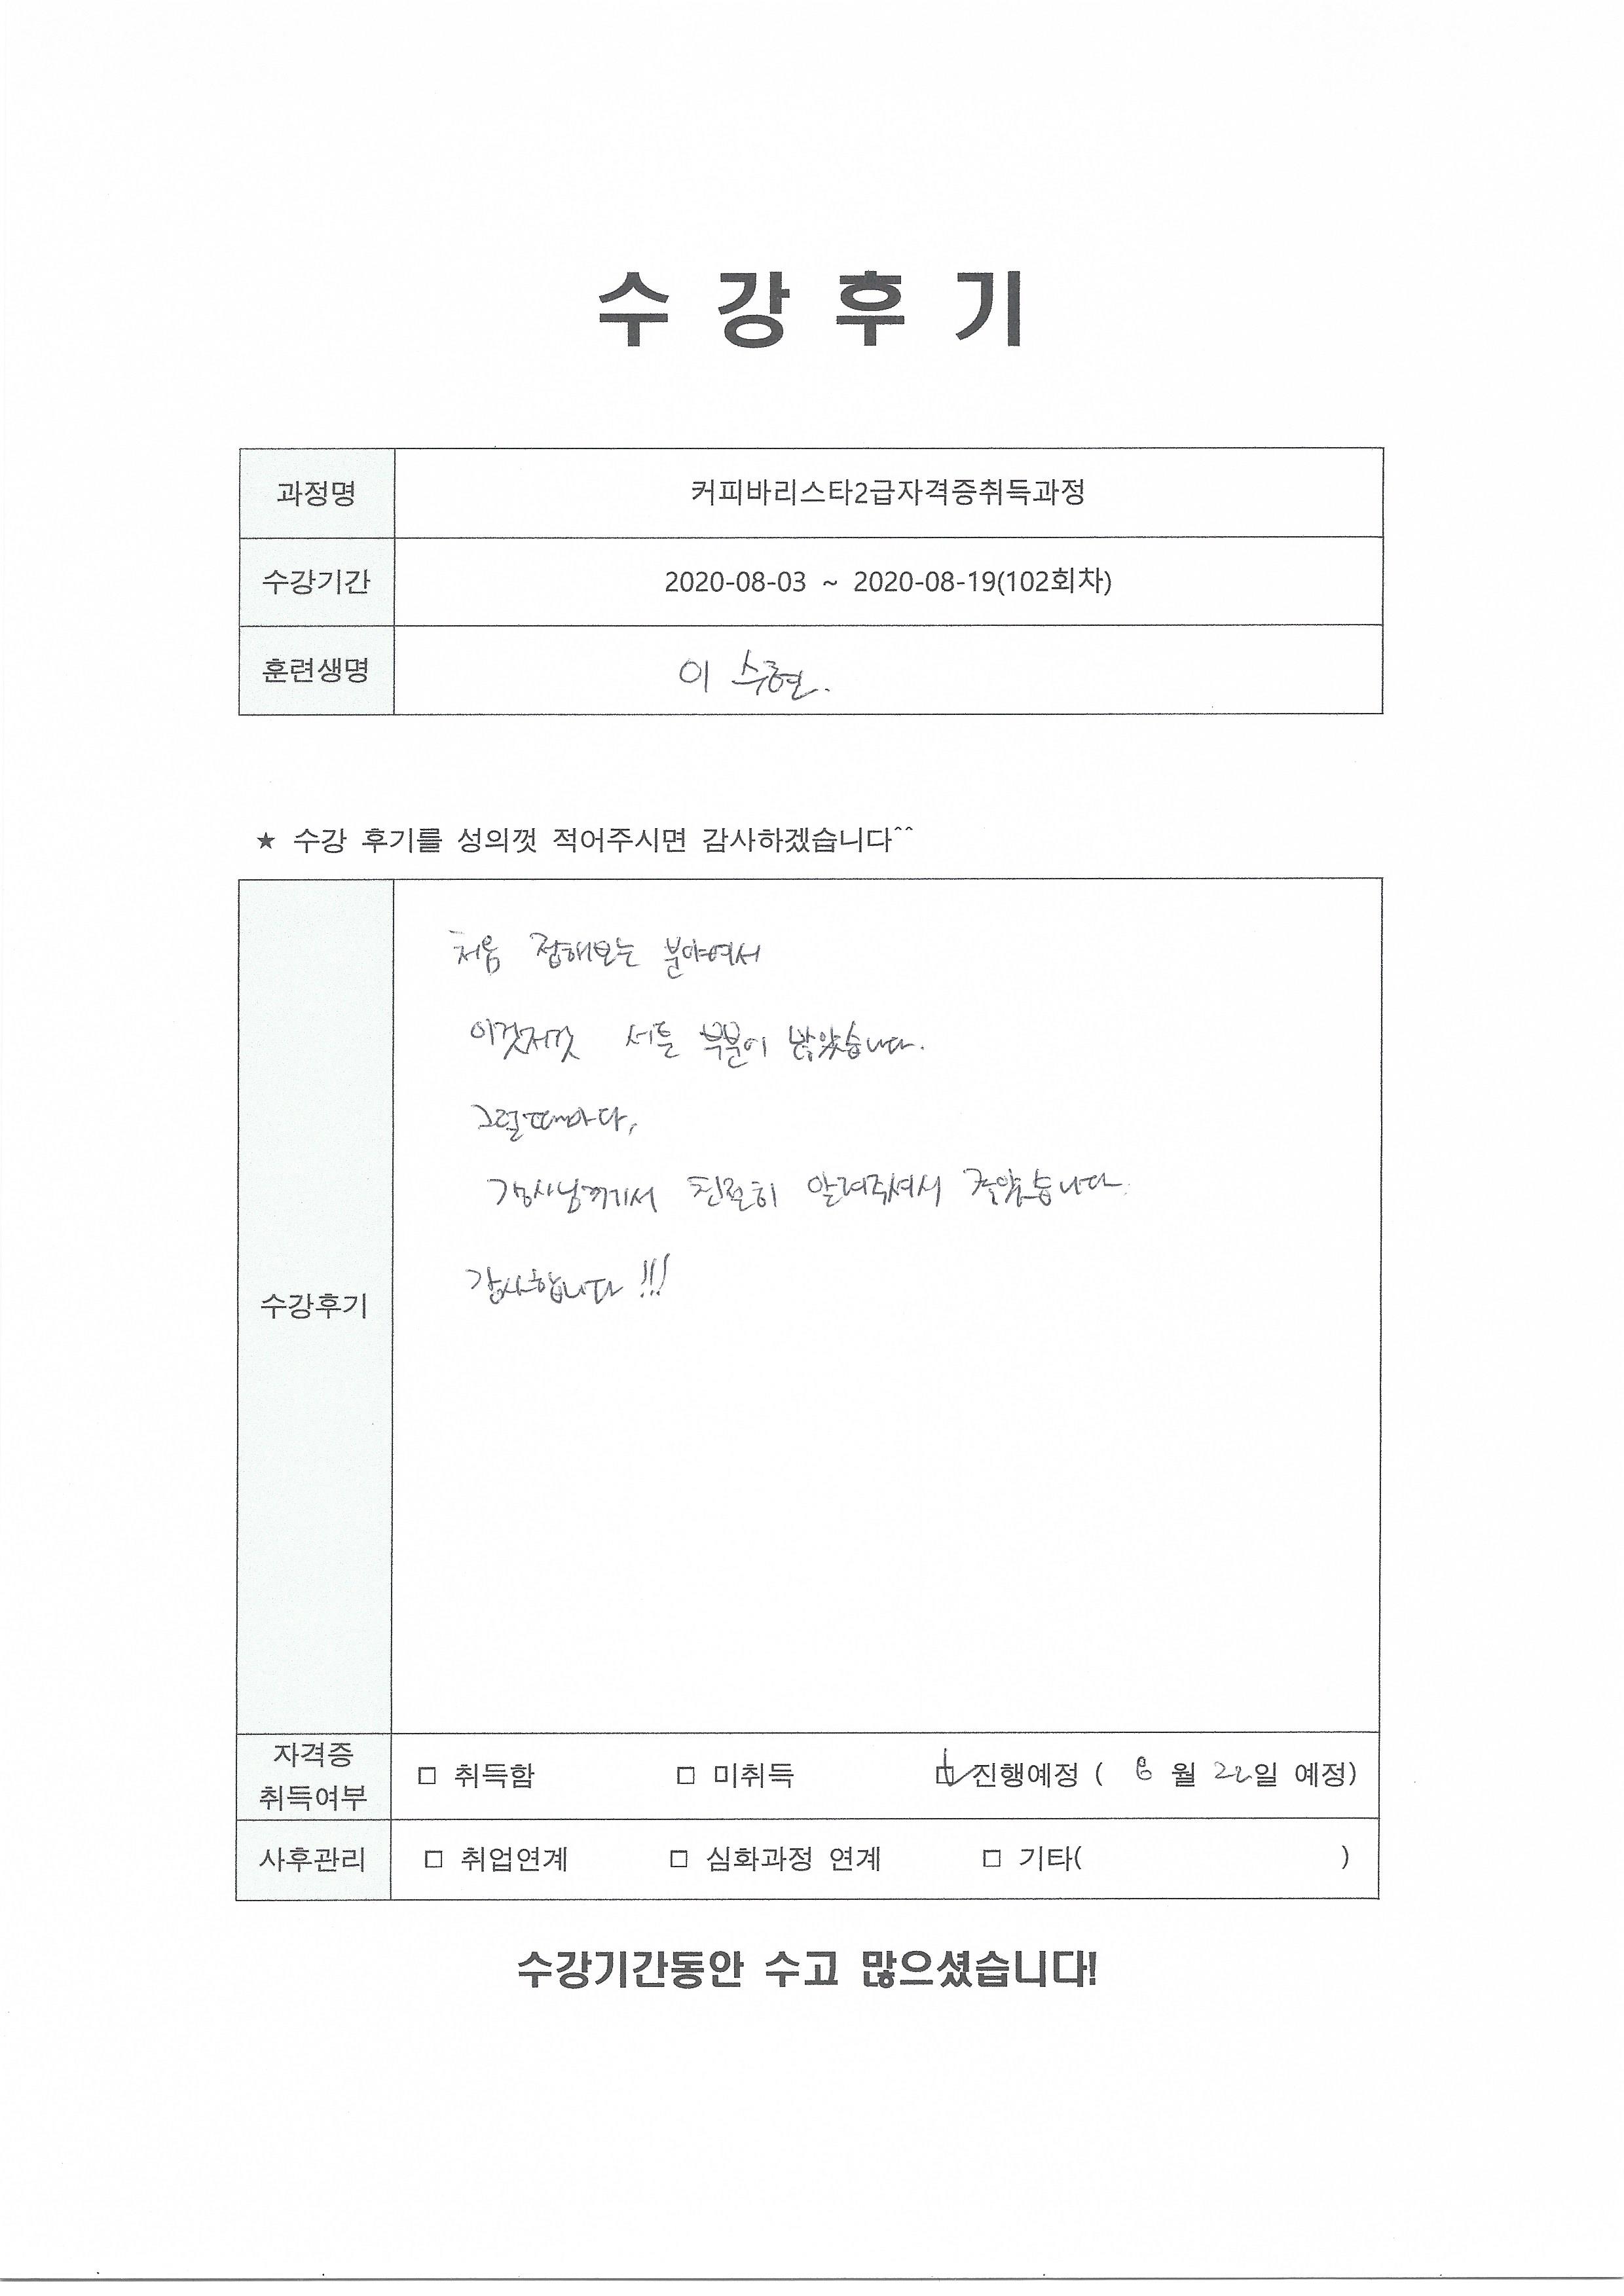 수 강 후 기
과정명 커피바리스타2급자격증취득과정
수강기간 2020-08-03 ~ 2020-08-19(102회차)
훈련생명 이 수현.
★ 수강 후기를 성의껏 적어주시면 감사하겠습니다^^
처음 접해보는 분야여서
이것저것 서툰 부분이 많았습니다.
그럴때마다,
강사님께서 친절히 알려주셔서 좋았습니다.
감사합니다 !!!
수강후기
자격증
취득여부
□ 취득함 □ 미취득 ☑ 진행예정 ( 8 월 22일 예정)
사후관리 □ 취업연계 □ 심화과정 연계 □ 기타( )
수강기간동안 수고 많으셨습니다!